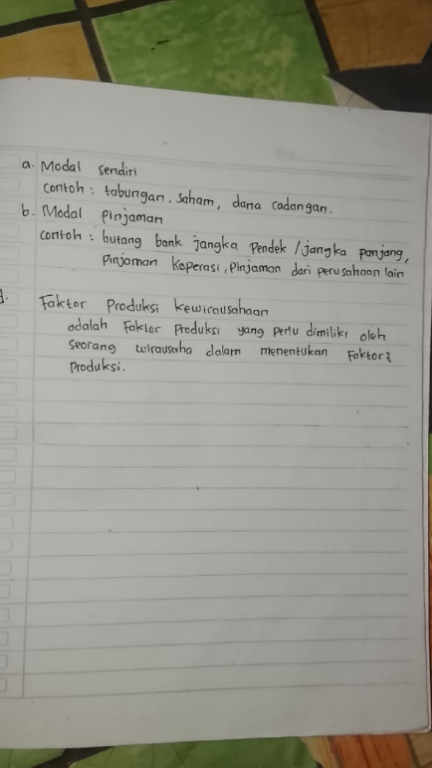 a. Modal sendiri
contoh : tabungan, saham, dana cadangan.
b. Modal Pinjaman
contoh : hutang bank jangka Pendek / jangka panjang,
Pinjaman Koperasi, Pinjaman dari perusahaan lain
d. Faktor Produksi kewirausahaan
adalah Faktor Produksi yang perlu dimiliki oleh
seorang wirausaha dalam menentukan Faktor2
Produksi.